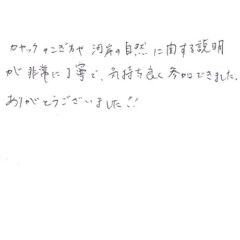 カヤックのこぎ方や河岸の自然に関する説明
が非常に丁寧で、気持ち良く参加できました。
ありがとうございました!!